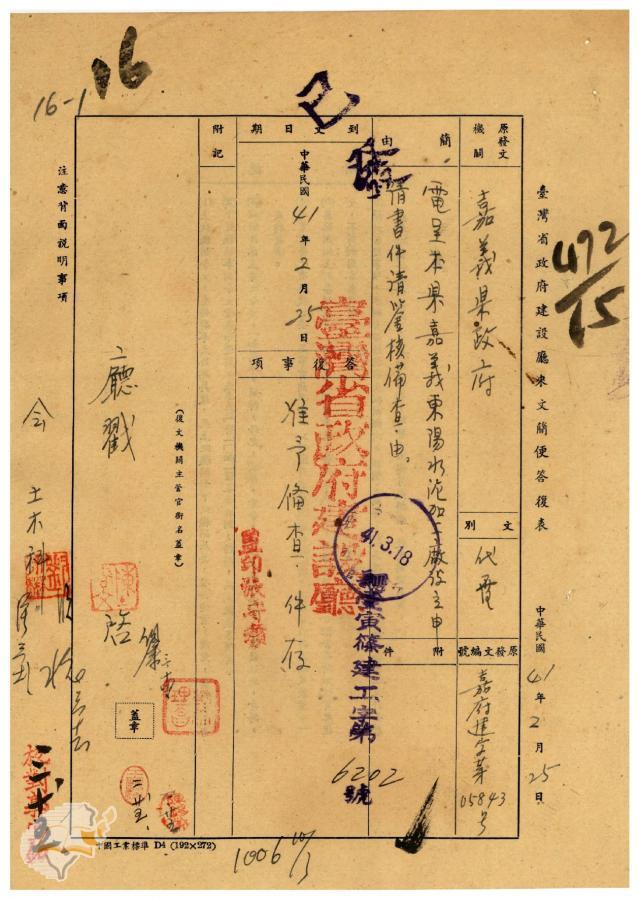 16
16-1
已發
472/15
臺灣省政府建設廳來文簡便答復表
中華民國41年2月25日
原發文機關
嘉義県政府
文別
代電
原發文編號
嘉府建字第05843号
簡由
電呈本県嘉義東陽水泥加工廠設立申請書件請鑒核備查由。
附件
到文日期
中華民國41年2月25日
答復事項
准予備查 件存
臺灣省政府建設廳
41.3.18
寅篠建工字第6202號
監印
附記
(復文機關主管官銜名蓋章)
廳戳
蓋章
注意背面說明事項
会 土木科
校對
中國工業標準 D4 (192×272)
1006